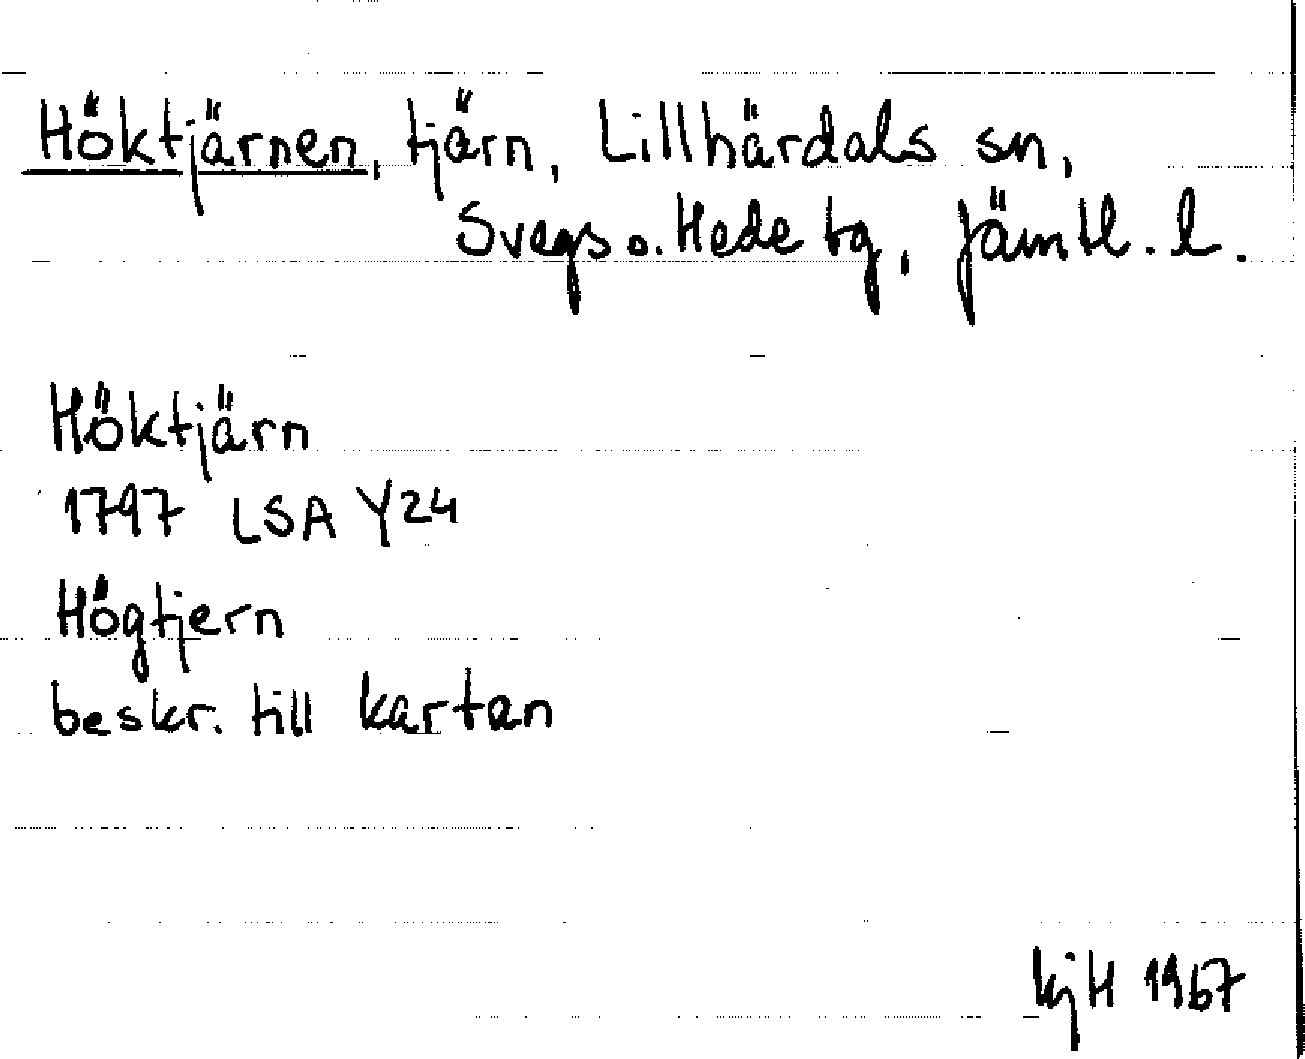 Höktjärnen, tjärn, Lillhärdals sn,
Svegs o. Hede tg, Jämtl. l.
Höktjärn
1797 LSA Y24
Högtjern
beskr. till kartan
KjH 1967